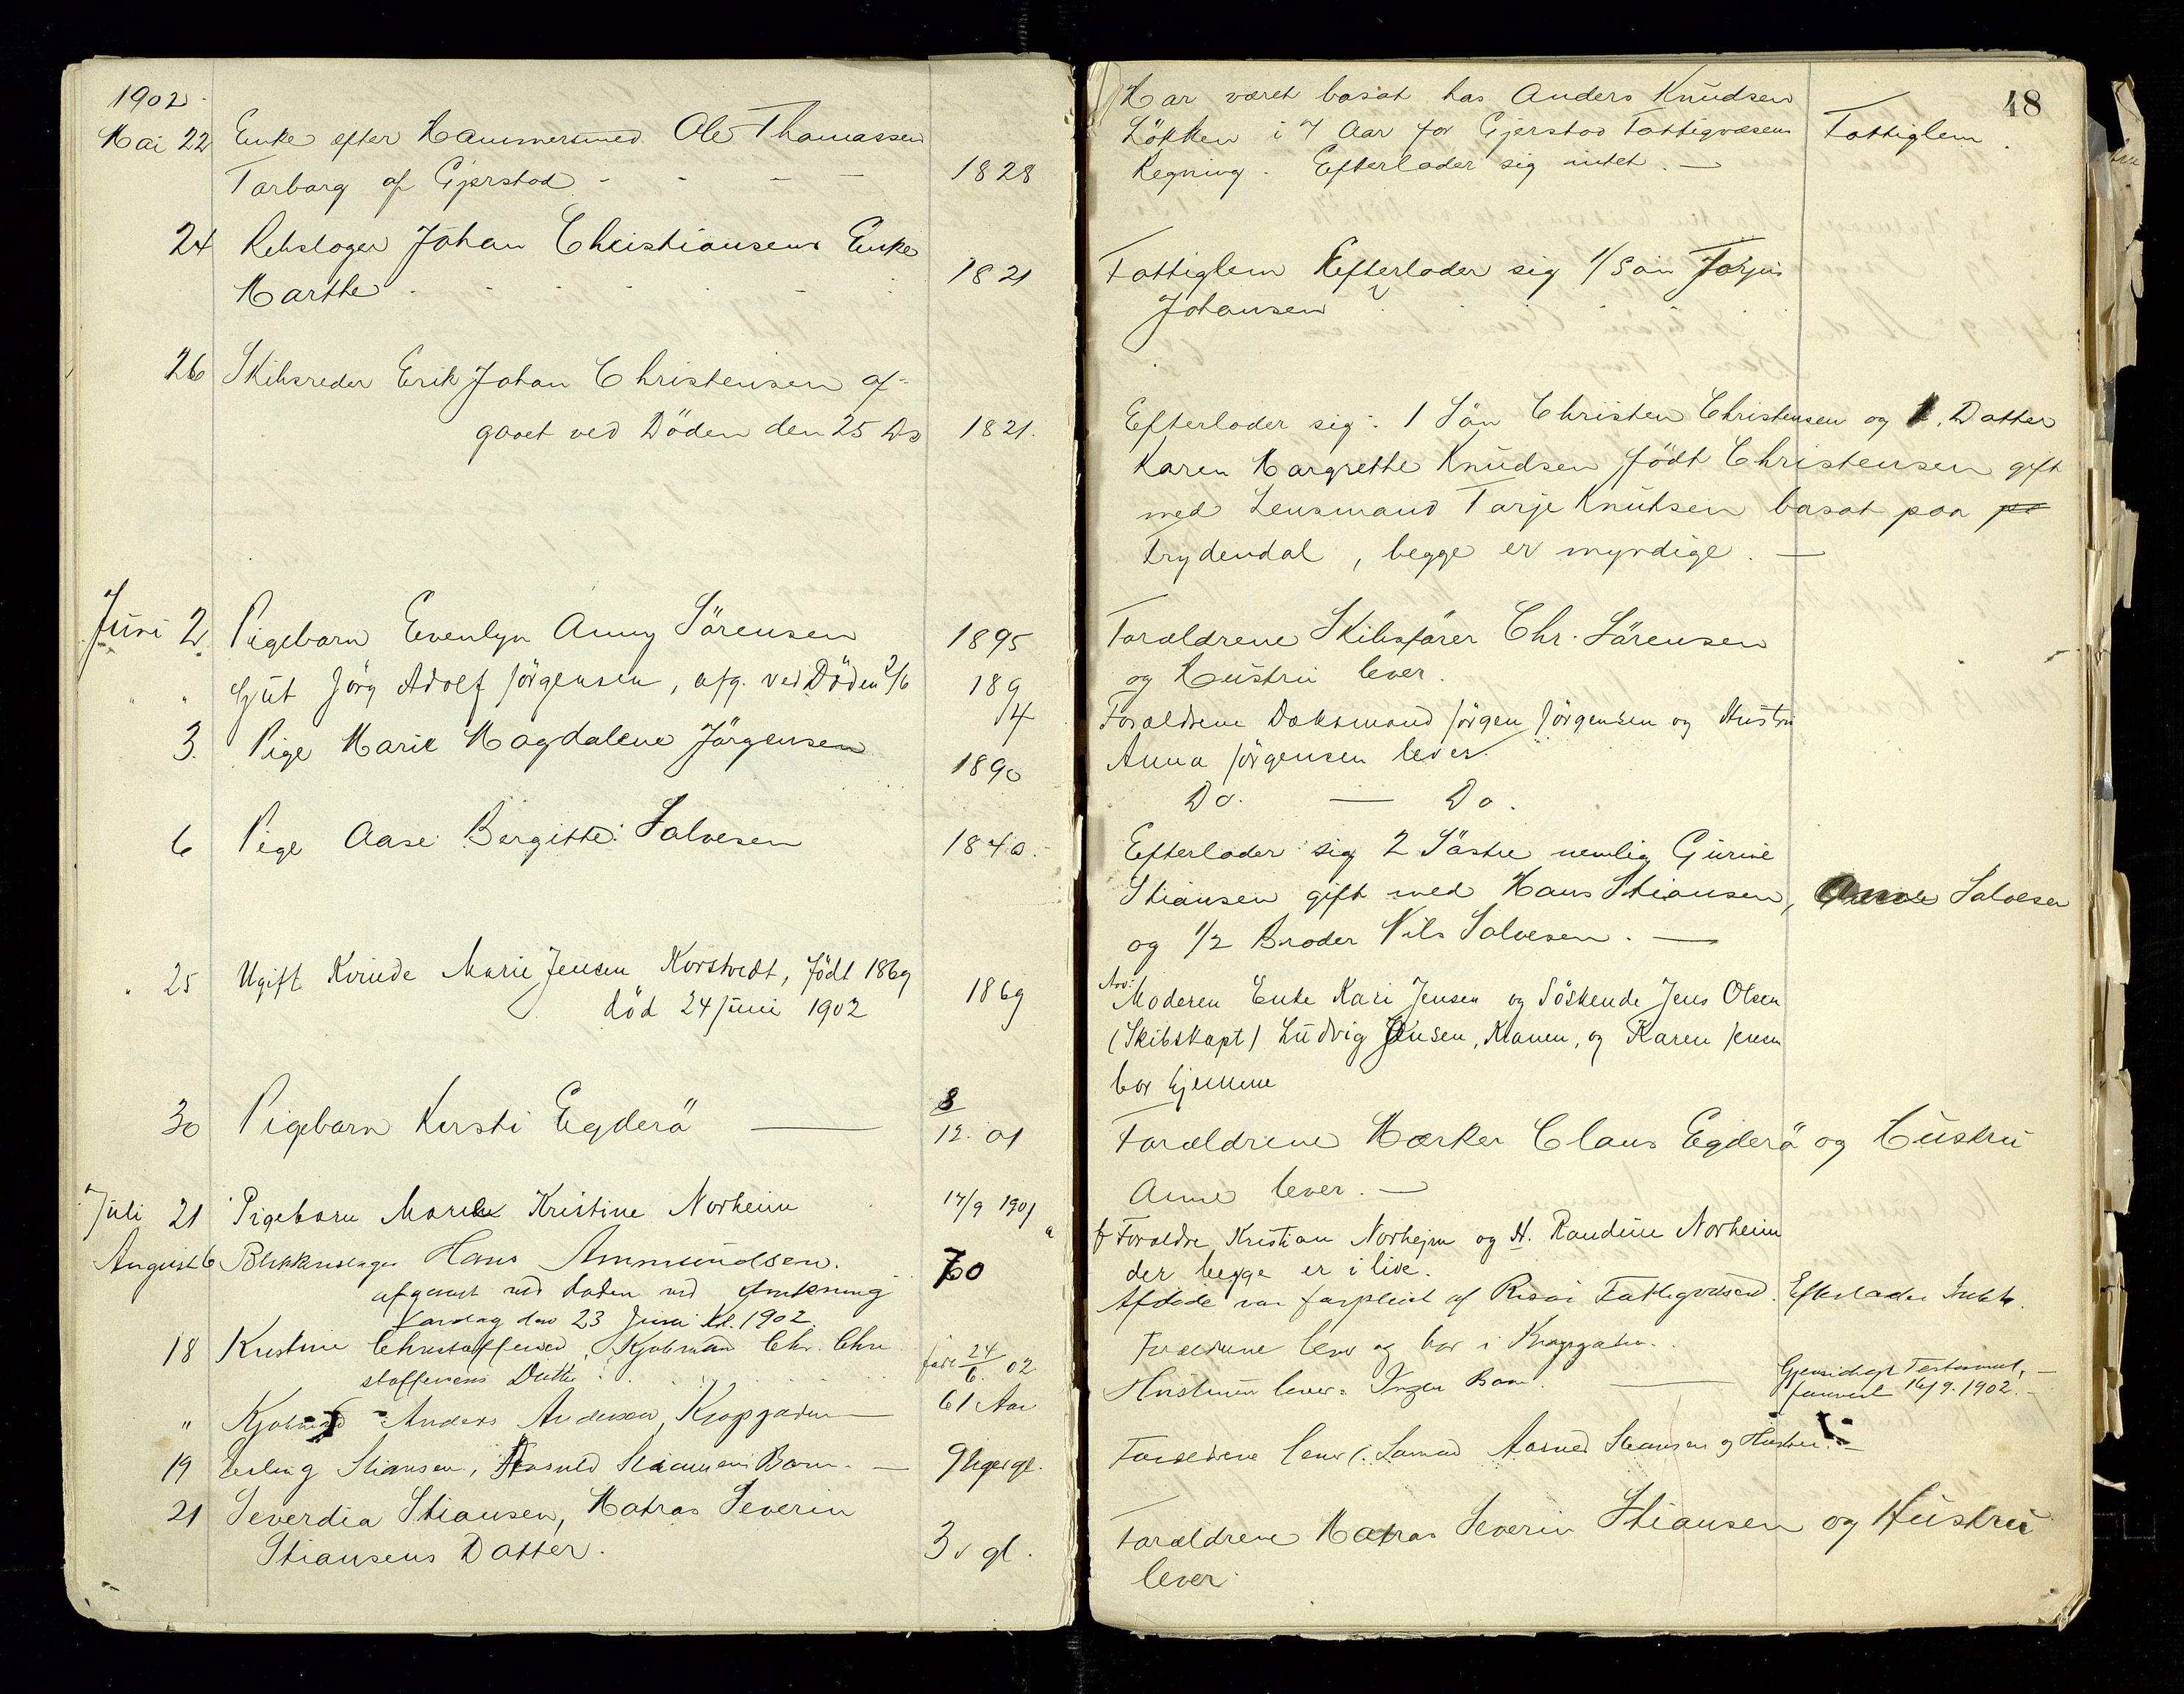 1902
Mai 22 Enke efter Hammersmed Ole Thomassen
Torborg af Gjerstad - - - - 1828
24 Rebslager Johan Christiansens Enke
Marthe 1821
26 Skibsreder Erik Johan Christensen af-
gaaet ved Döden den 25 Ds 1821.
Juni 2 Pigebarn Evenlyn Anny Sörensen 1895
" " Gut Jörg Adolf Jörgensen, afg. ved Döden 2/6 1894
3. Pige Marie Magdalene Jörgensen 1890
6 Pige Aase Bergitte Salvesen 1840.
" 25 Ugift Kvinde Marie Jensen Korstvedt, född 1869
död 24 Juni 1902 1869
30 Pigebarn Kirsti Egderö — 8/12. 01
Juli 21 Pigebarn Marie Kristine Norheim 17/9 1901
August 6 Blikkenslager Hans Ammundsen. 70
afgaaet ved döden ved
Lördag den 23 Juni Kl. 1902.
18 Kristine Christoffersen, Kjobmand Chr. Chri
stoffersens Datter födt 24/6. 02
" Kjobmand Anders Andersen, Kragsgaden — 61 Aar
19 Erling Stiansen, Aasmund Stiansens Barn. — 9 Uger gl.
21 Severdia Stiansen, Matros Severin
Stiansens Datter. 3 v gl.
48
Har været bosat hos Anders Knudsen
Lökken i 7 Aar for Gjerstad Fattigvæsens Fattiglem
Regning. Efterlader sig intet. —
Fattiglem Efterlader sig 1/ Sön Torjus
Johansen
Efterlader sig: 1 Sön Christen Christensen og 1. Datter
Karen Margrethe Knudsen födt Christensen gift
med Lensmand Tarje Knutsen bosat paa
Frydendal, begge er myndige. —
Forældrene Skibsförer Chr. Sörensen
og Hustru lever.
Forældrene Dæksmand Jörgen Jörgensen og Hustru
Anna Jörgensen lever.
Do. — Do.
Efterlader sig 2 Söstre nemlig Gurine
Stiansen gift med Hans Stiansen, Anne Salvesen
og 1/2 Broder Nils Salvesen. —
Arv: Moderen Enke Kari Jensen og Söskende Jens Olsen
(Skibskapt) Ludvig Jensen, Kanen, og Karen Jensen
bor hjemme
Forældrene Mærker Claus Egderö og Hustru
Anne lever. —
Forældre Kristian Norheim og H. Randine Norheim
der begge er i live.
Afdöde var forpleiet af Risör Fattigvæsen. Efterlader Intet.
Forældrene lever og bor i Kragsgaden.
Hustruen lever. Ingen Barn. — Gjensidigt Testament,
16/9. 1902. —
Forældrene lever (. Sömand Aasmund Stiansen og Hustru. —
Forældrene Matros Severin Stiansen og Hustru
lever.